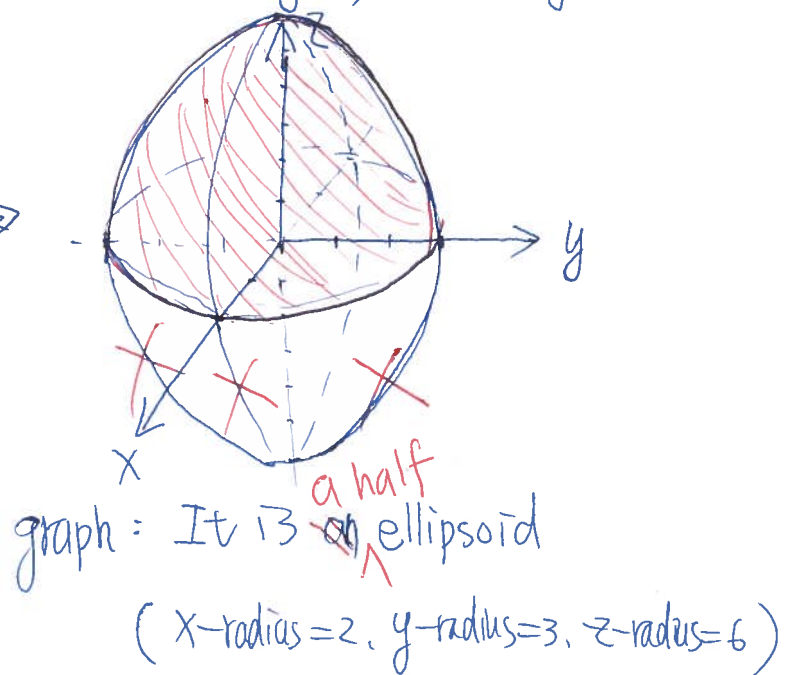 z
y
x
a half
graph : It is an ellipsoid
( x-radius=2, y-radius=3, z-radus=6 )